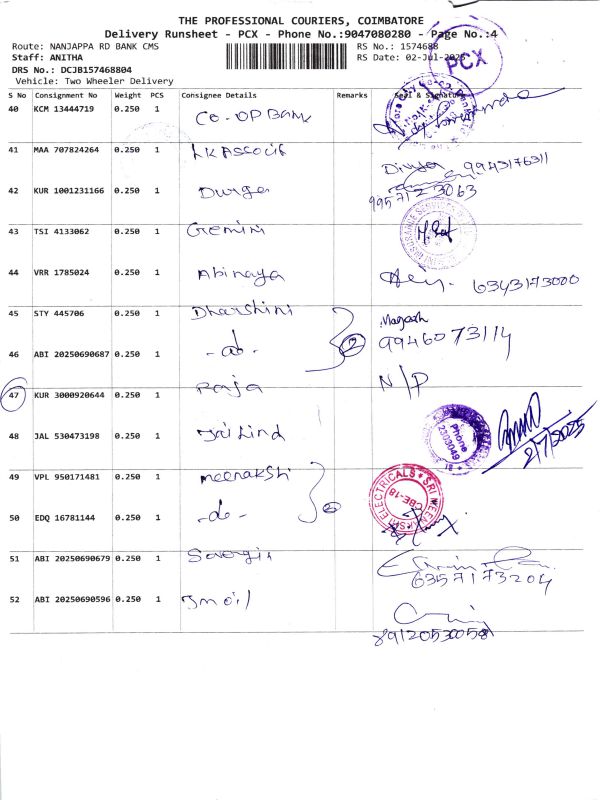 THE PROFESSIONAL COURIERS, COIMBATORE
Delivery Runsheet - PCX - Phone No.:9047080280 - Page No.:4
Route: NANJAPPA RD BANK CMS
RS No.: 1574688
Staff: ANITHA
RS Date: 02-Jul-2025
DRS No.: DCJB157468804
Vehicle: Two Wheeler Delivery
PCX
S No Consignment No Weight PCS Consignee Details Remarks Seal & Signature
40 KCM 13444719 0.250 1 CO-OP BANK
41 MAA 707824264 0.250 1
Divya 9943176311
42 KUR 1001231166 0.250 1 Durga
9957123063
43 TSI 4133062 0.250 1 Gemini
44 VRR 1785024 0.250 1 Abinaya 6343173000
45 STY 445706 0.250 1 Dharshini
2 9946073114
46 ABI 20250690687 0.250 1 -do-
47 KUR 3000920644 0.250 1 Raja N/P
48 JAL 530473198 0.250 1 Jaihind
Phone
2303049
2/7/2025
49 VPL 950171481 0.250 1 meenakshi
SRI MEENAKSHI ELECTRICALS
CBE-18
50 EDQ 16781144 0.250 1 -do- 2
51 ABI 20250690679 0.250 1
6357173204
52 ABI 20250690596 0.250 1
89120530058